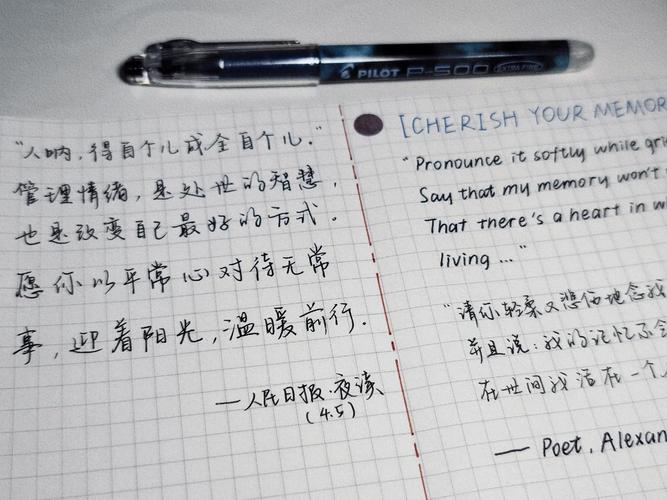 PILOT P-500 EXTRA FINE
"人呐，得自个儿成全自个儿."
管理情绪，是处世的智慧，
也是改变自己最好的方式.
愿你以平常心对待无常
事，迎着阳光，温暖前行.
—人民日报·夜读
(4.5)
[CHERISH YOUR MEMOR
"Pronounce it softly while gri
Say that my memory won't
That there's a heart in w
living ..."
"请你轻柔又悲伤地念我
并且说：我的记忆不会
在世间我活在一个人
— Poet, Alexan